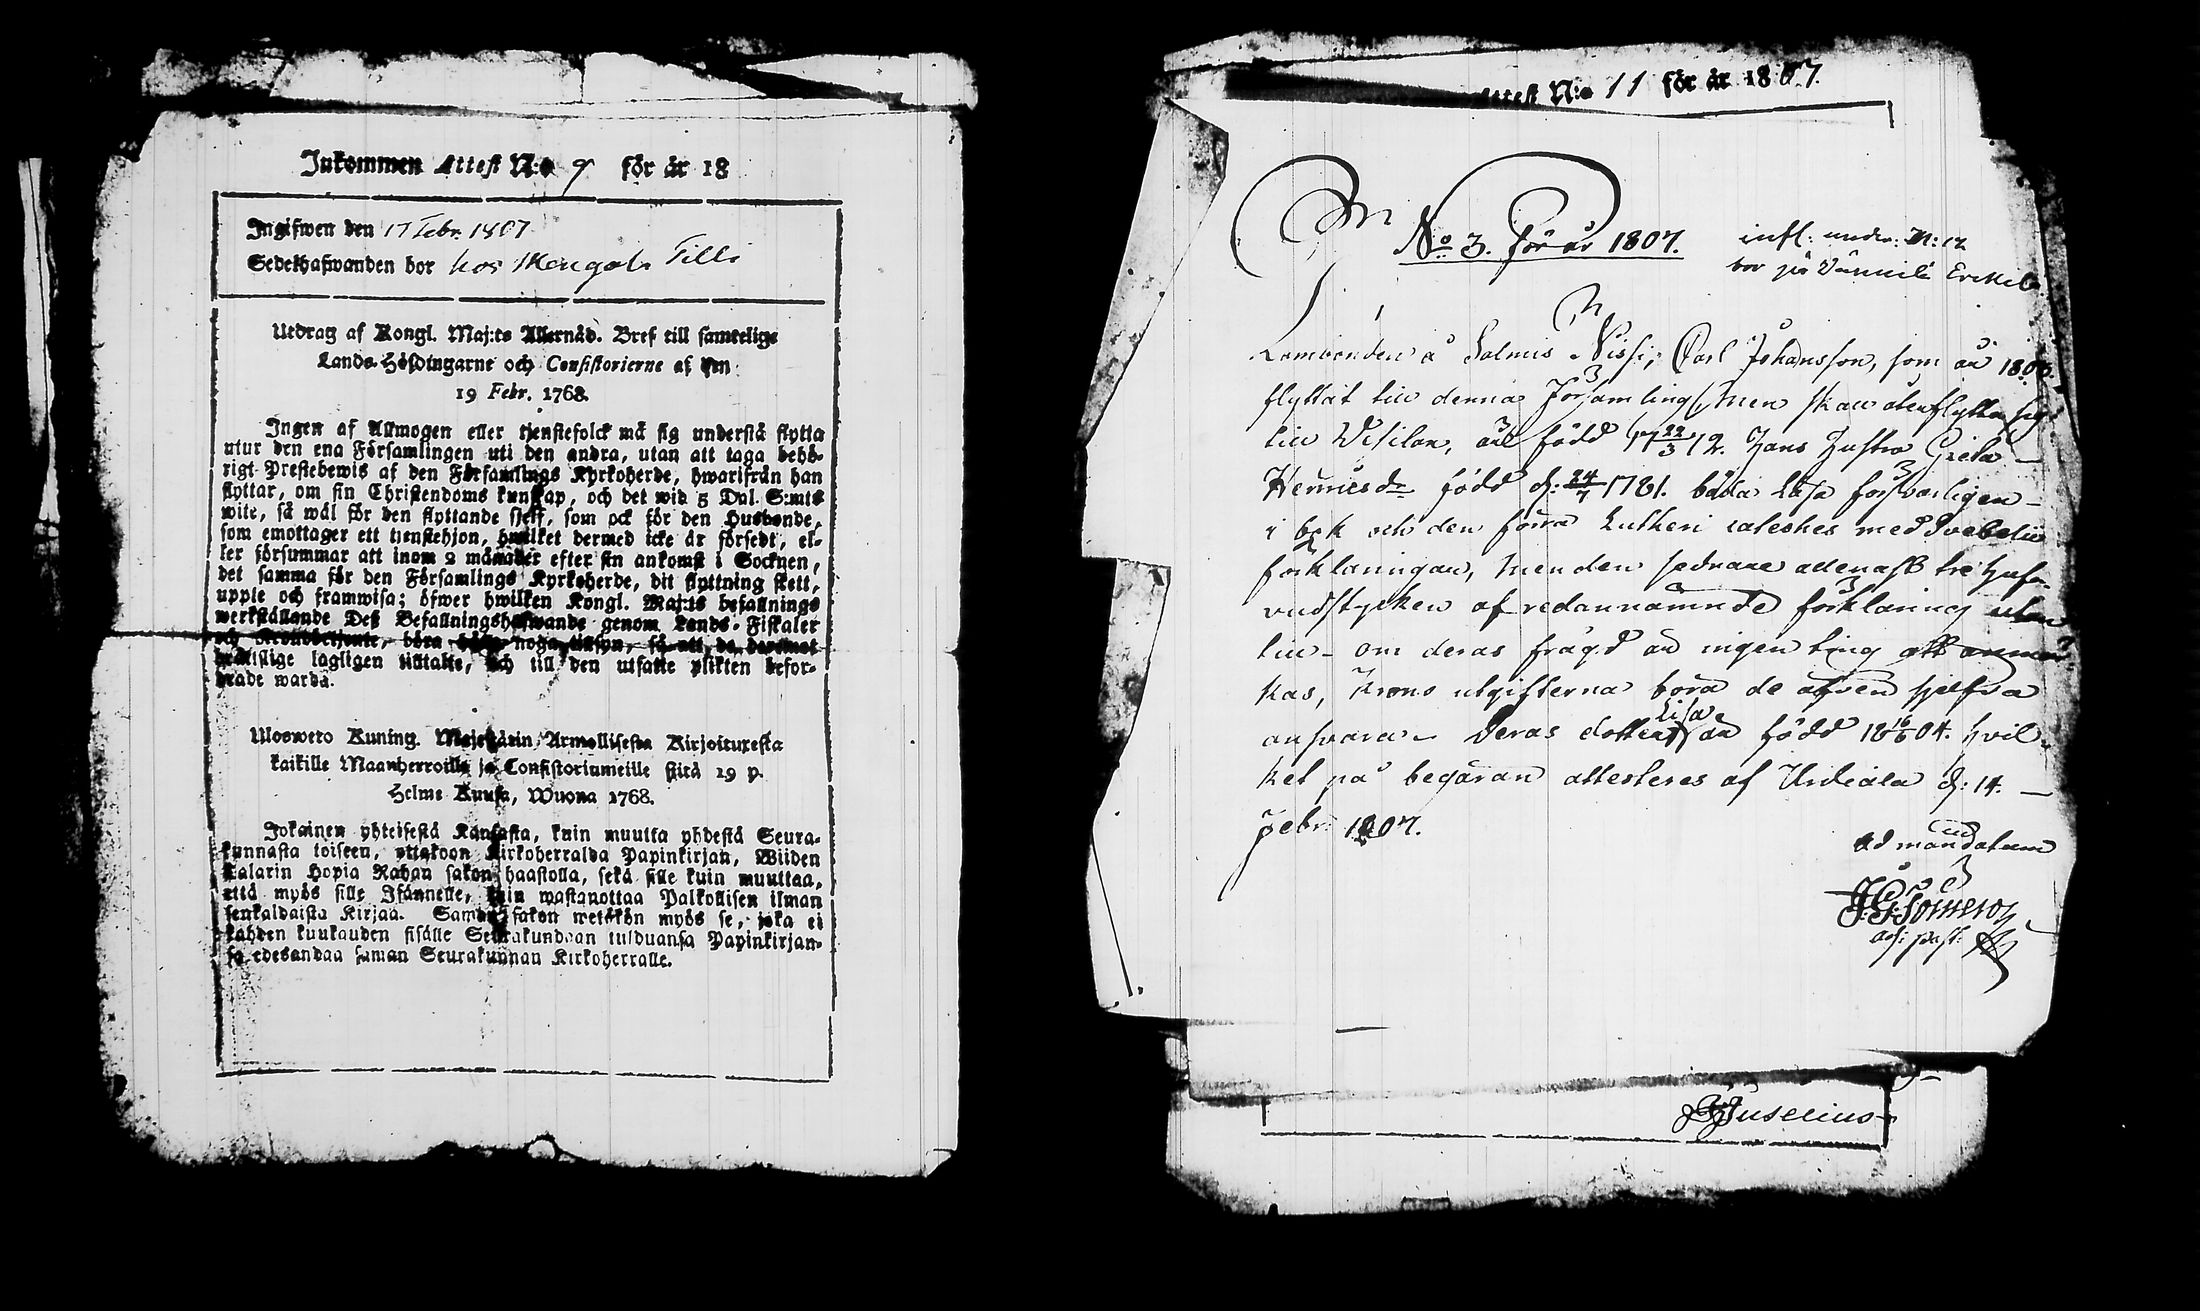 Inkommen Attest N:o 9 för år 18
Ingifwen den 17 Febr. 1807
Sedelhafwanden bor hos Mengals Tilli
Utdrag af Kongl. Maj:ts Allernåd. Bref till samtelige
Lands-Höfdingarne och Consistorierne af den
19 Febr. 1768.
Ingen af Allmogen eller tjenstefolck må sig understå flytta
utur den ena Församlingen uti den andra, utan att taga behö-
rigt Prestebewis af den Församlings Kyrkoherde, hwarifrån han
flyttar, om sin Christendoms kunskap, och det wid 5 Dal. S:mts
wite, så wäl för den flyttande sjelf, som ock för den Husbonde,
som emottager ett tjenstehjon, hwilket dermed icke är försedt, el-
ler försummar att inom 2 månader efter sin ankomst i Socknen,
det samma för den Församlings Kyrkoherde, dit flyttning skett,
uppte och framwisa; öfwer hwilken Kongl. Maj:ts befallnings
werkställande Deß Befallningshafwande genom Lands-Fiskaler
och Kronobetjente, böra hafwa noga tillsyn, så att de deremot
brottslige lagligen tilltalte, och till den utsatte plikten befor-
drade warda.
Ulosweto Kuning. Majestätin Armollisesta Kirjoituxesta
kaikille Maanherroille ja Consistoriumeille siitä 19 p.
Helme Kuusa, Wuona 1768.
Jokainen yhteisestä Kansasta, kuin muutta yhdestä Seura-
kunnasta toiseen, ottakoon Kirkoherralda Papinkirjan, Wiiden
Talarin Hopia Rahan sakon haastolla, sekä sille kuin muuttaa,
että myös sille Isännelle, kuin wastanottaa Palkollisen ilman
senkaldaista Kirjaa. Saman sakon wetäkön myös se, joka ei
kahden kuukauden sisälle Seurakundaan tulduansa Papinkirjan-
sa edesandaa saman Seurakunnan Kirkoherralle.
Attest N:o 11 för år 1807.
No 3. för år 1807.
infl: under N: 12
bor på Erckilä
Lambonden å Salmis Nissi, Carl Johansson, som år 180
flyttat till denna Församling, men skall återflytta sig
till Vesilax, är född 17 22/3 72. hans hustru Greta
Henricsdr född d: 24/7 1781. båda läsa försvarligen
i bok och den förra Lutheri cateches med Svebelii
förklaringar, men den sednare allenast tre hufv
vudstycken af redannämnde förklaring utan
till - om deras frägd är ingen ting att anmär
kas, Krono utgifterna böra de äfven sjelfva
ansvara - Deras dotter Lisa är född 18 16/6 04. hvil-
ket på begäran attesteras af Urdiala d: 14.
Febr: 1807.
ad mandatum
J: G: Somero
adj: past:
Juselius